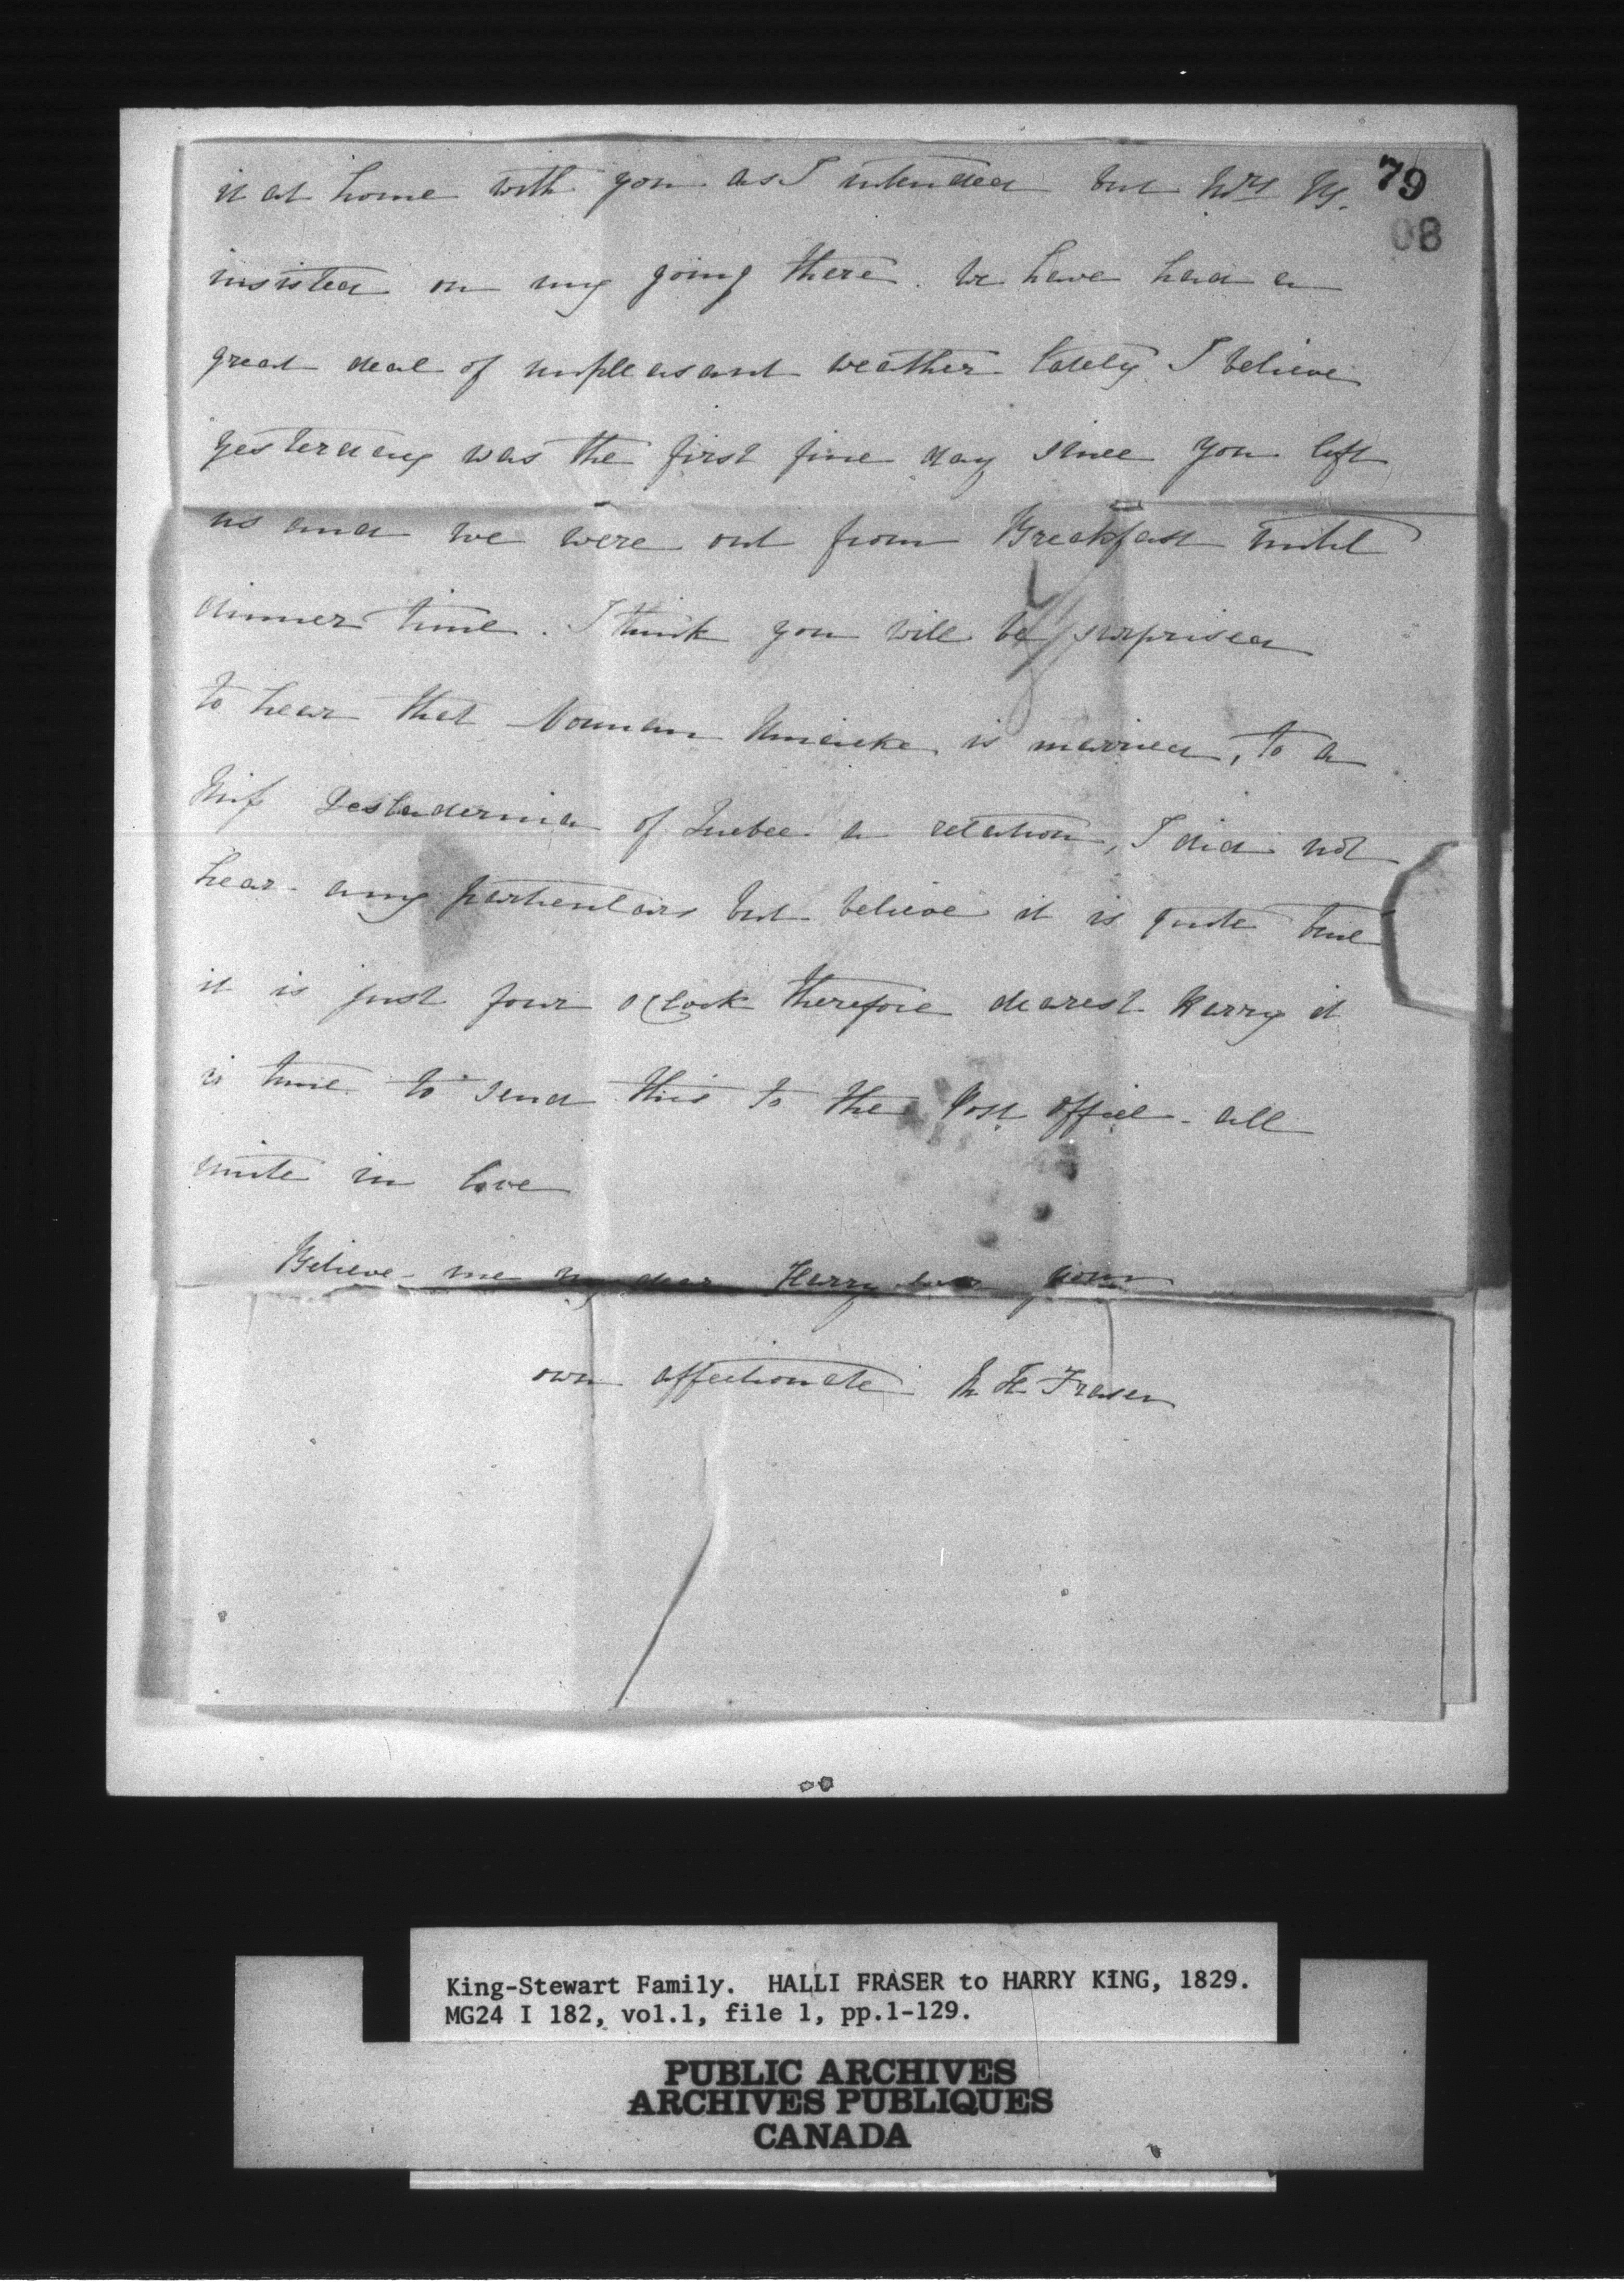 79
08
it at home with you as I intended but Mrs
insisted on my going there. We have had a
great deal of unpleasant weather lately I believe
yesterday was the first fine day since you left
us and we were out from Breakfast until
dinner time. I think you will be surprised
to hear that Norman Uniacke is married, to a
Miss Desbadernia of Quebec a relation, I did not
hear any particulars but believe it is quite true
it is just four oClock therefore dearest Harry it
is time to send this to the Post office - all
unite in love
Believe me my dear Harry ever your
own affectionate Fraser
King-Stewart Family. HALLI FRASER to HARRY KING, 1829.
MG24 I 182, vol.1, file 1, pp.1-129.
PUBLIC ARCHIVES
ARCHIVES PUBLIQUES
CANADA